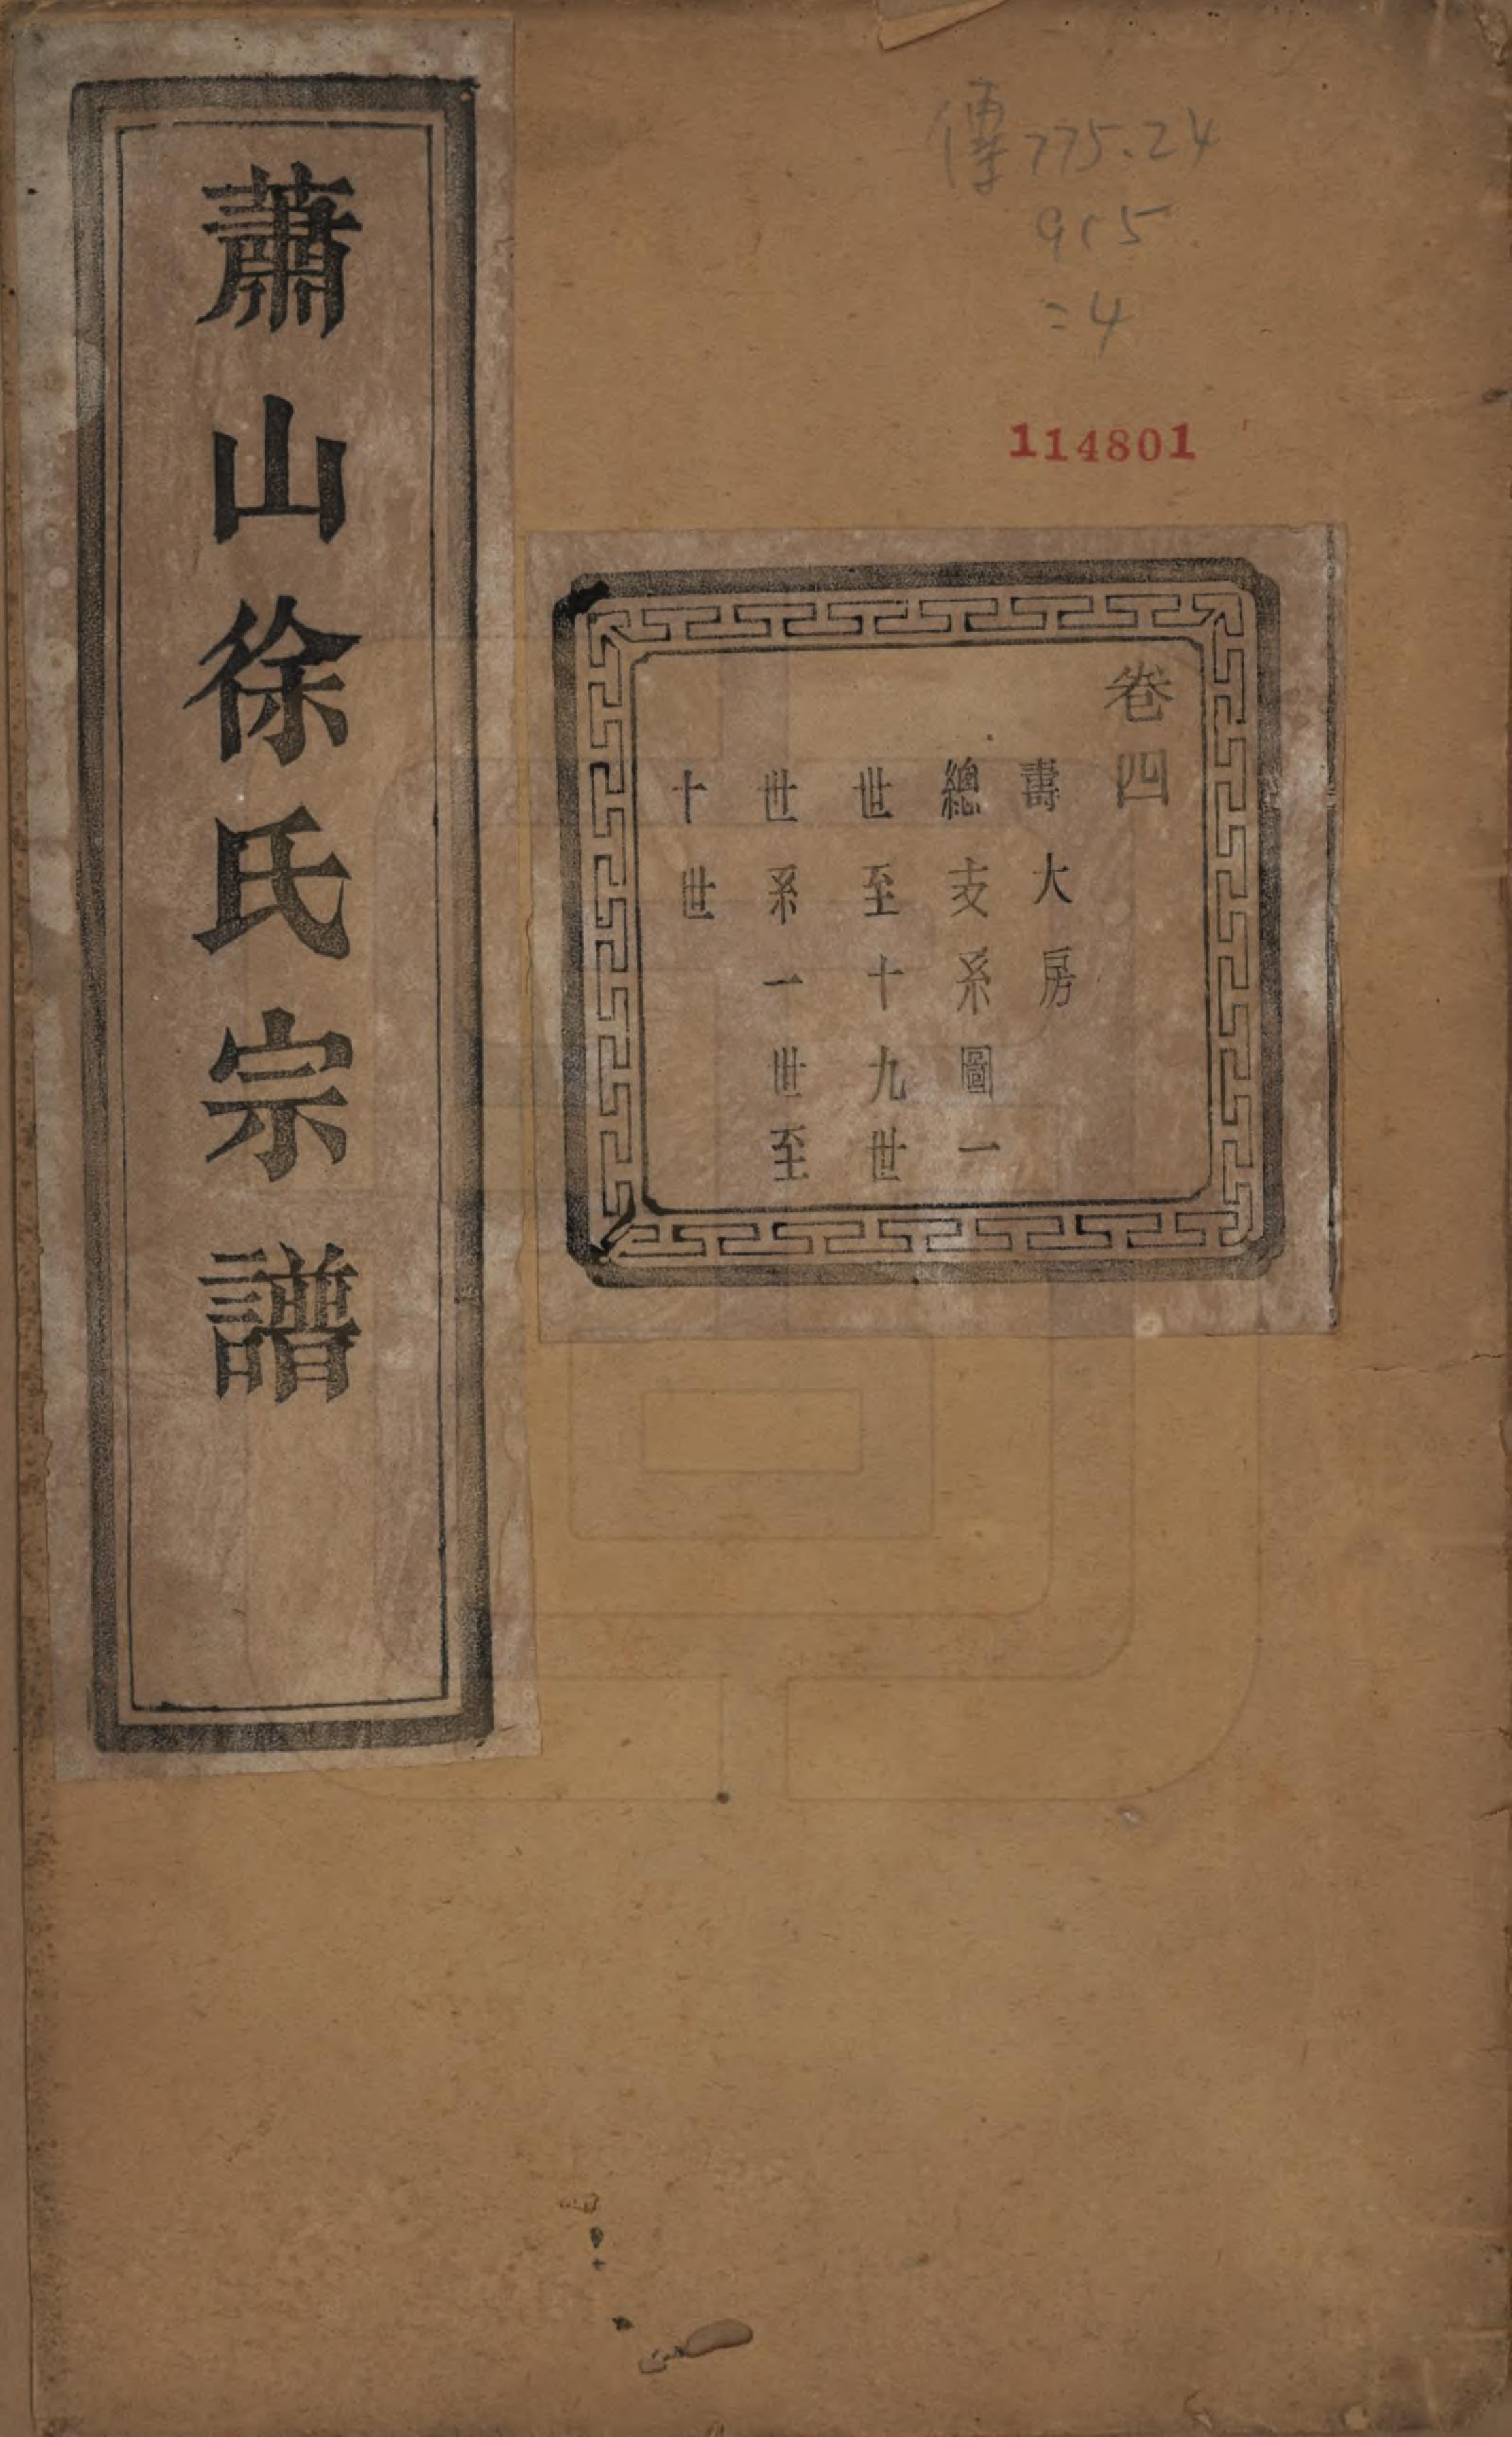 傳775.24
915
=4
114801
卷四
壽大房
總支系圖一
世至十九世
世系一世至
十世
蕭山徐氏宗譜